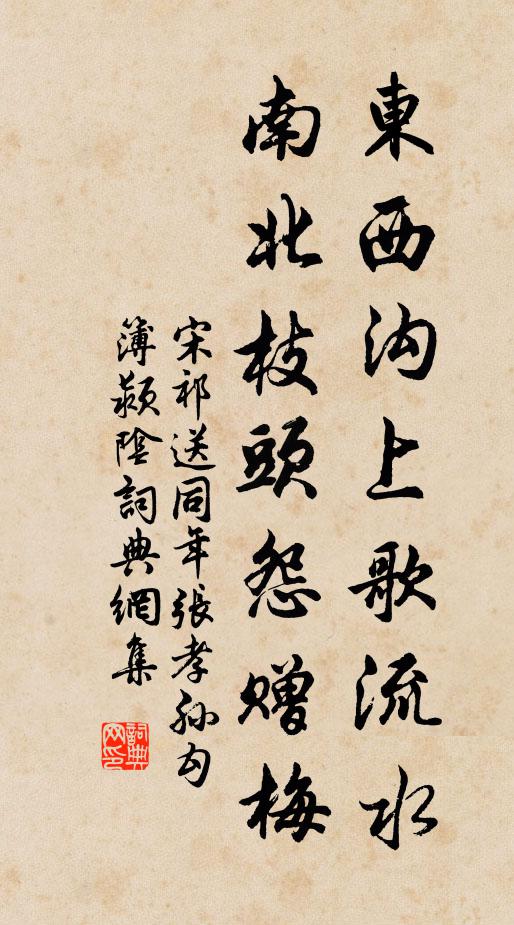 東西沟上歌流水
南北枝頭怨贈梅
宋祁送同年張孝孫勾
簿潁陰詞典網集
詞典
网印